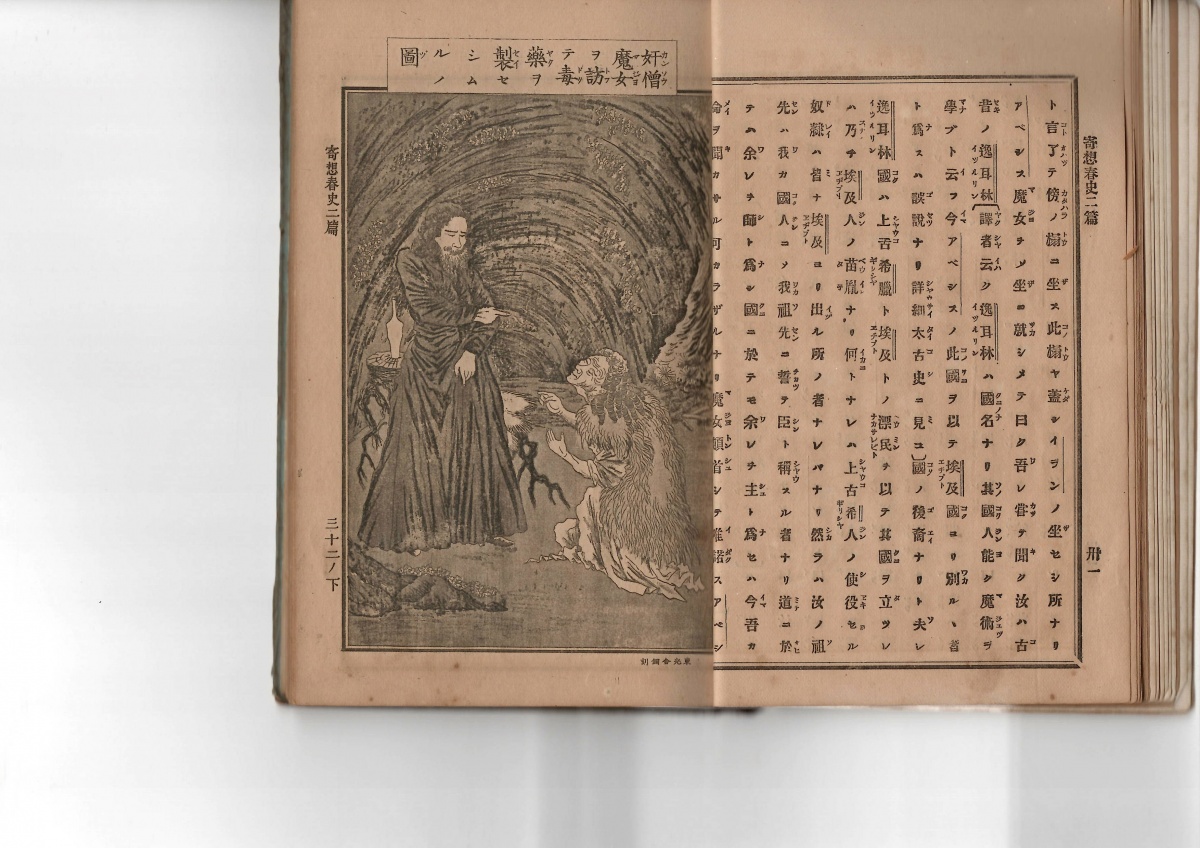 寄想春史二篇
卅一
ト言了テ傍ノ榻ニ坐ス此榻ヤ蓋シイヲンノ坐セシ所ナリ
アベシス魔女ヲノ坐ニ就シメテ曰ク吾レ嘗テ聞ク汝ハ古
昔ノ逸耳林〔譯者云ク逸耳林ハ國名ナリ其國人能ク魔術ヲ
學ブト云フ今アベシスノ此國ヲ以テ埃及國ヨリ別ルヽ者
ト爲スハ誤説ナリ詳細太古史ニ見ユ〕國ノ後裔ナリト夫レ
逸耳林國ハ上古希臘ト埃及トノ漂民ヲ以テ其國ヲ立ツレ
ハ乃チ埃及人ノ苗胤ナリ何トナレハ上古希人ノ使役セル
奴隷ハ皆ナ埃及ヨリ出ル所ノ者ナレバナリ然ラハ汝ノ祖
先ハ我カ國人ニノ我祖先ニ誓テ臣ト稱スル者ナリ道ニ於
テハ余レヲ師ト爲シ國ニ於テモ余レヲ主ト爲セハ今吾カ
命ヲ聞カサル可カラザルナリ魔女頓首シテ唯諾スアベシ
奸僧魔女ヲ訪テ毒藥ヲ製セシムルノ圖
寄想春史二篇
三十二ノ下